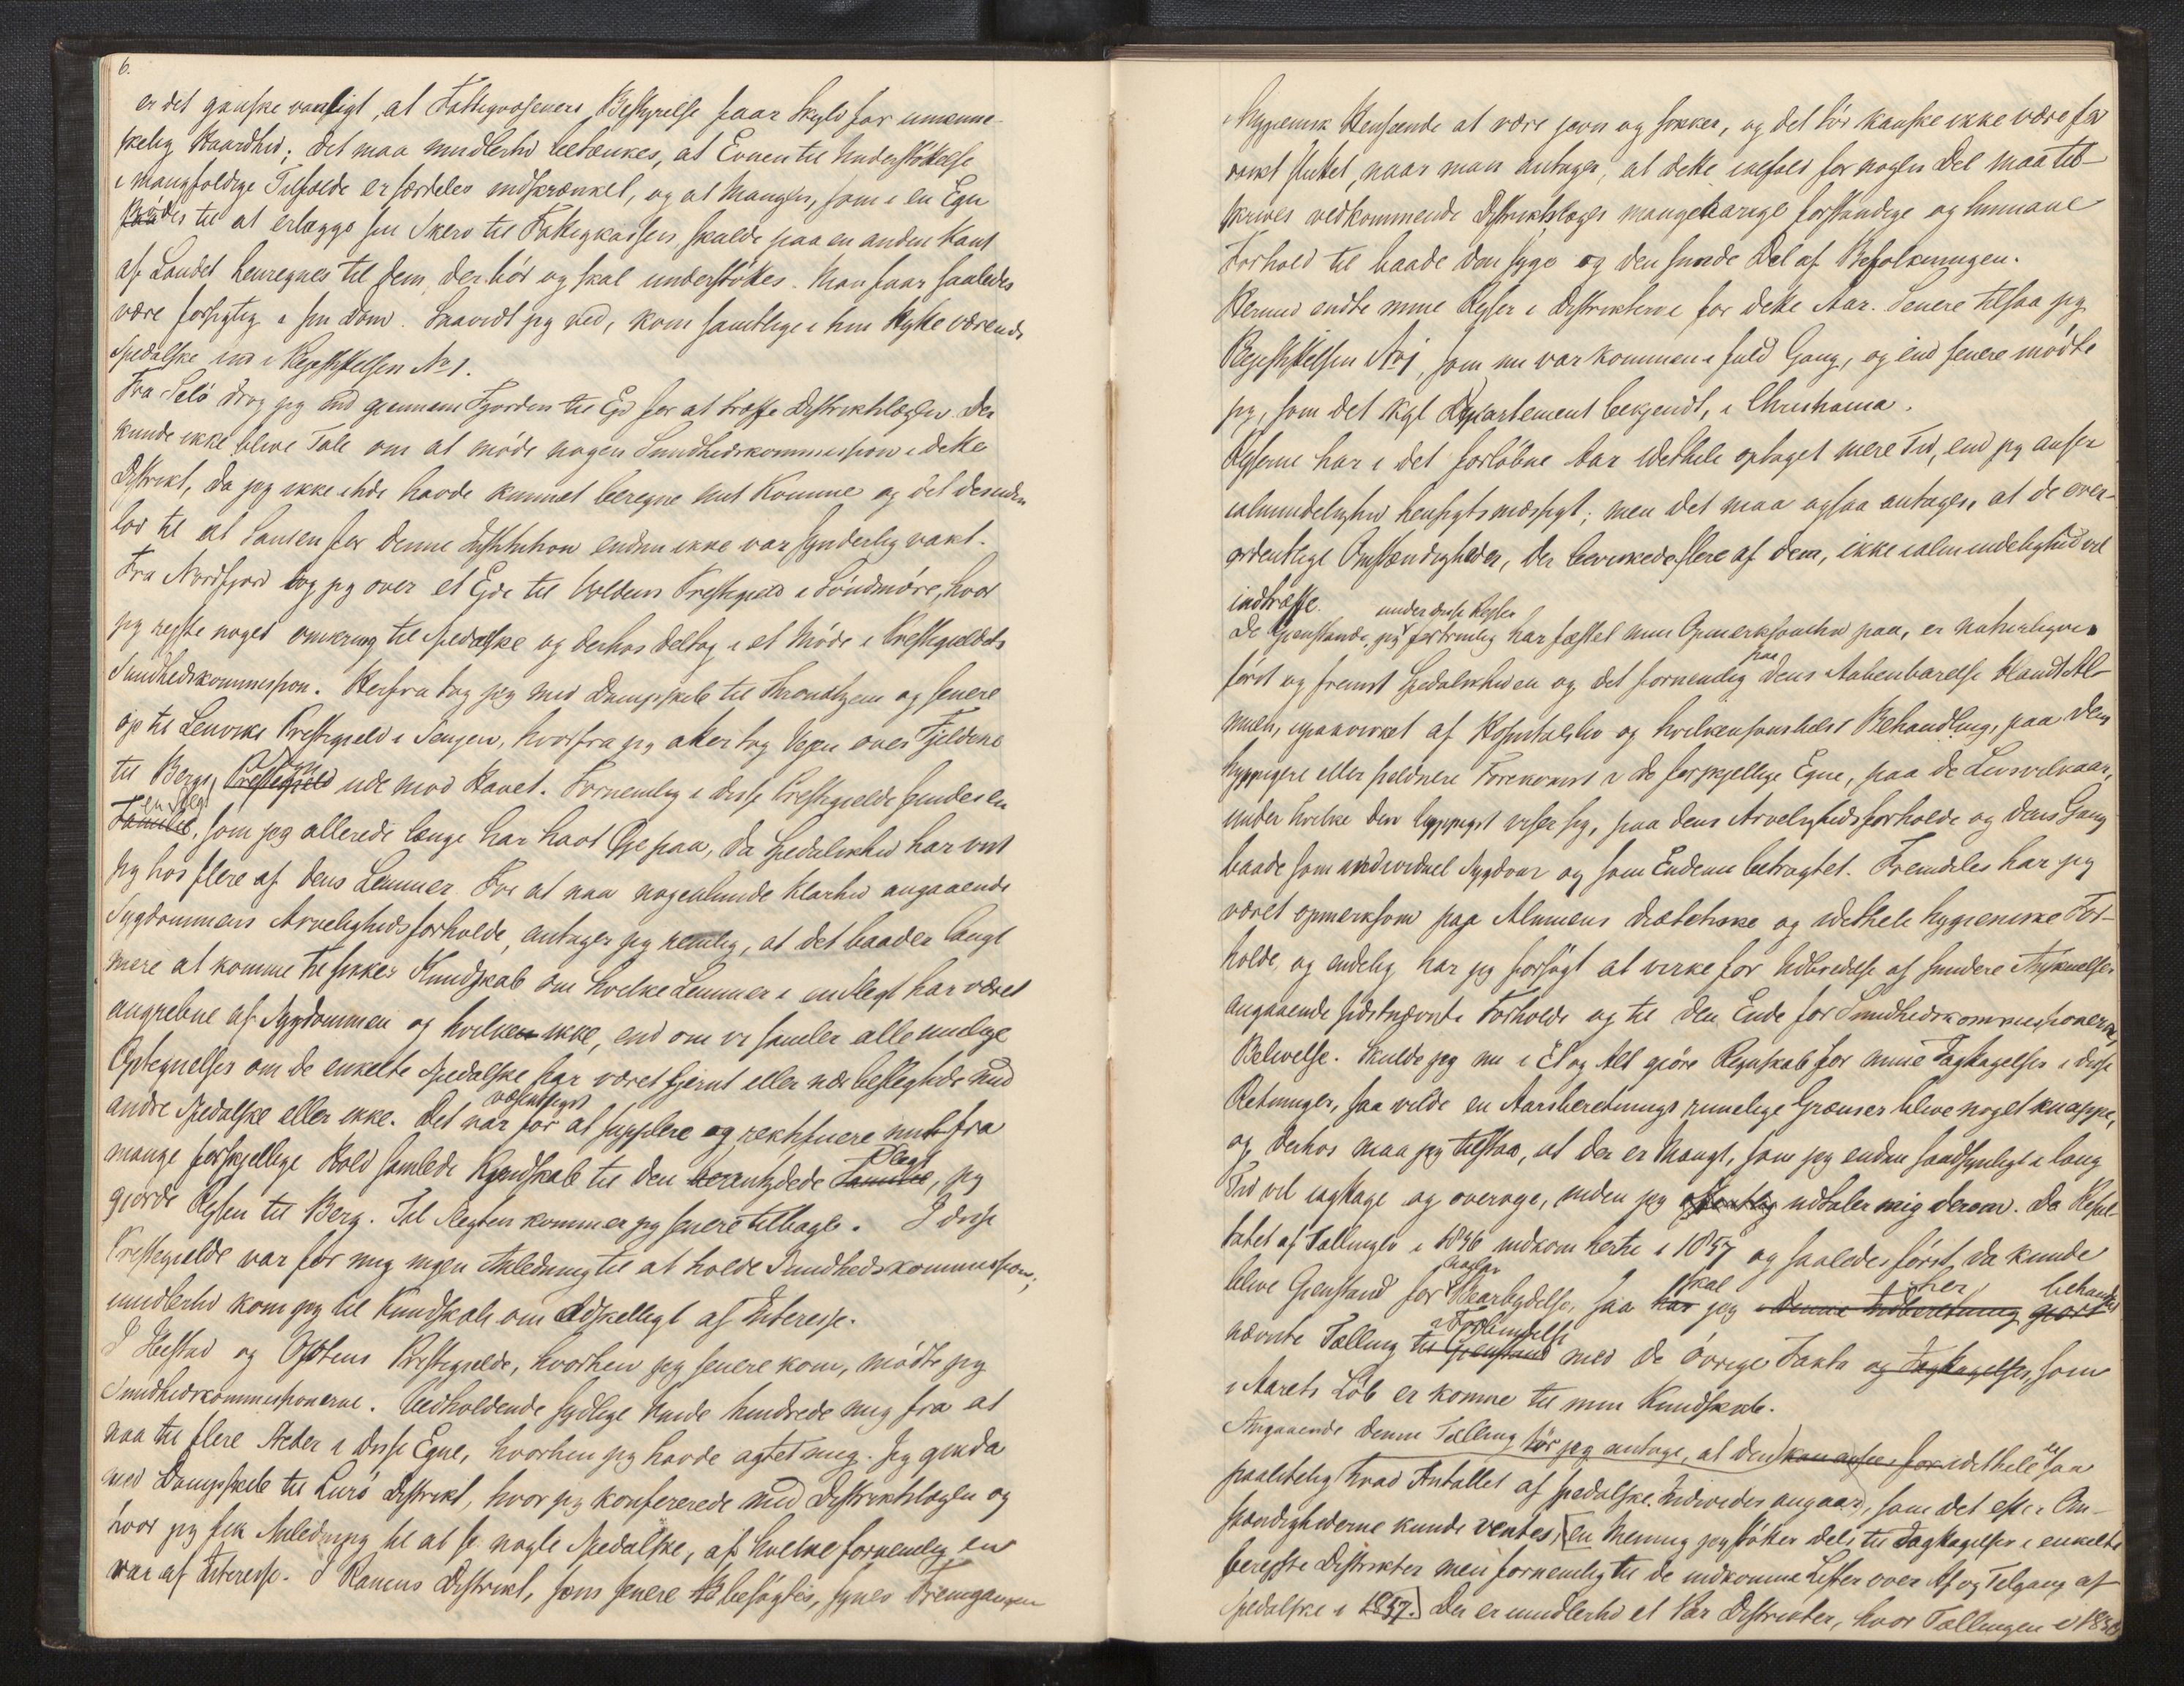 6.
er det ganske vanligt, at Fattigvæsenets Bestyrelse faar Skyld for umenne-
skelig Haardhed; det maa imidlertid betænkes, at Evnen til Understøttelse
i mangfoldige Tilfælde er særdeles indskrænket, og at Mangen, som i en Egn
nødes til at erlægge sin Skerv til Fattigkassen, skulde paa en anden Kant
af Landet henregnes til dem, der bør og skal understøttes. Man faar saaledes
være forsigtig i sin Dom. Saavidt jeg ved, kom samtlige i hin Hytte værende
Spedalske ind i Plejestiftelsen No 1.
Fra Selö drog jeg ind gjennem Fjorden til Eid for at træffe Distriktslægen. Der
kunde ikke blive Tale om at møde nogen Sundhedskommission i dette
Distrikt, da jeg ikke havde kunnet beregne mit Komme og det desuden
lod til at Sansen for denne Institution endnu ikke var synderlig vakt.
Fra Nordfjord tog jeg over et Eide til Voldens Præstegield i Söndmöre, hvor
jeg rejste noget omkring til Spedalske og derhos deltog i et Møde i Præstegieldets
Sundhedskommission. Herfra tog jeg med Dampskib til Throndhjem og senere
op til Lenviks Præstegield i Senjen, hvorfra jeg atter tog Vejen over Fjeldene
til Bergs Præstegield ude mod Havet. Fornemlig i disse Præstegielde findes en
en Slegt
Familie, som jeg allerede længe har havt Øje paa, da Spedalskhed har vist
sig hos flere af dens Lemmer. For at naa nogenlunde Klarhed angaaende
Sygdommens Arvelighedsforholde, antager jeg nemlig, at det baader langt
mere at komme til sikker Kundskab om hvilke Lemmer i en Slegt har været
angrebne af Sygdommen og hvilke ikke, end om vi samler alle mulige
Optegnelser om de enkelte Spedalske har været fjernt eller nær beslegtede med
andre Spedalske eller ikke. Det var væsentligst for at supplere og rektificere mit fra
mange forskjellige Hold samlede Kjendskab til den herantydede Familie Slegt, jeg
gjorde Rejsen til Berg. Til Slegten kommer jeg senere tilbage. I disse
Præstegielde var for mig ingen Anledning til at holde Sundhedskommission;
imidlertid kom jeg til Kundskab om Adskelligt af Interesse.
I Hestad og Ofotens Præstegielde, hvorhen jeg senere kom, mødte jeg
Sundhedskommissionerne. Vedholdende sydlige Vinde hindrede mig fra at
naa til flere Steder i disse Egne, hvorhen jeg havde agtet mig. Jeg gik da
med Dampskib til Lurö Distrikt, hvor jeg konfererede med Distriktslægen og
hvor jeg fik Anledning til at se nogle Spedalske, af hvilke fornemlig en
var af Interesse. I Ranens Distrikt, som senere besøgtes, synes Fremgangen
i hygienisk Henseende at være jævn og sikker, og det tör kanske ikke være for
rankt sluttet, naar man antager, at dette ialfald for nogen Del maa til-
skrives vedkommende Distriktslæges mangeaarige forstandige og humane
Forhold til baade den syge og den sunde Del af Befolkningen.
Hermed endte mine Rejser i Distrikterne for dette Aar. Senere tilsaa jeg
Plejestiftelsen No 1, som nu var kommen i fuld Gang, og end senere mødte
jeg, som det kgl Departement bekjendt, i Christiania.
Rejserne har i det forløbne Aar idethele optaget mere Tid, end jeg anser
ialmindelighed hensigtsmæssigt; men det maa ogsaa antages, at de over-
ordentlige Omstændigheder, der bevirkede flere af dem, ikke ialmindelighed vil
indtræffe.
De Gjenstande, jeg under disse Rejser fortrinlig har fæstet min Opmærksomhed paa, er naturligvis
først og fremst Spedalskheden og det fornemlig paa dens Aabenbarelse blandt Al-
muen, upaavirket af Hospitalsliv og hvilkensomhelst Behandling, paa dens
hyppigere eller sieldnere Forekomst i de forskjellige Egne, paa de Livsvilkaar,
under hvilke den hyppigst viser sig, paa dens Arvelighedsforholde og dens Gang
baade som individuel Sygdom og som Endemi betragtet. Fremdeles har jeg
været opmerksom paa Almuens diætetiske og idethele hygieniske For-
holde, og endelig har jeg forsøgt at virke for Udbredelse af sundere Anskuelser
angaaende sidstnævnte Forholde og til den Ende for Sundhedskommissionernes
Belivelse. Skulde jeg nu i Et og Alt gjöre Regnskab for mine Iagttagelser i disse
Retninger, saa vilde en Aarsberetnings rimelige Grænser blive noget knappe,
og derhos maa jeg tilstaa, at der er Mangt, som jeg endnu sandsynligt i lang
Tid vil iagttage og overveje, inden jeg offentlig udtaler mig derom. Da Resul-
tatet af Tællingen i 1856 indkom hertil i 1857 og saaledes først da kunde
blive Gjenstand for Bearbejdelse, saa har skal jeg i denne Indberetning gjort her behandle
nævnte Tælling til Gjenstand i Forbindelse med de øvrige Fakta og Iagttagelser, som
i Aarets Løb er komne til min Kundskab.
Angaaende denne Tælling tör jeg antage, at den kan anses for idethele er saa
paalitelig hvad Antallet af spedalske Individer angaar, som det efter Om-
stændighederne kunde ventes, en Mening jeg støtter dels til Iagttagelser i enkelte
berejste Distrikter men fornemlig til de indkomne Lister over Af og Tilgang af
Spedalske i 1857. Der er imidlertid et Par Distrikter, hvor Tællingen i 1856